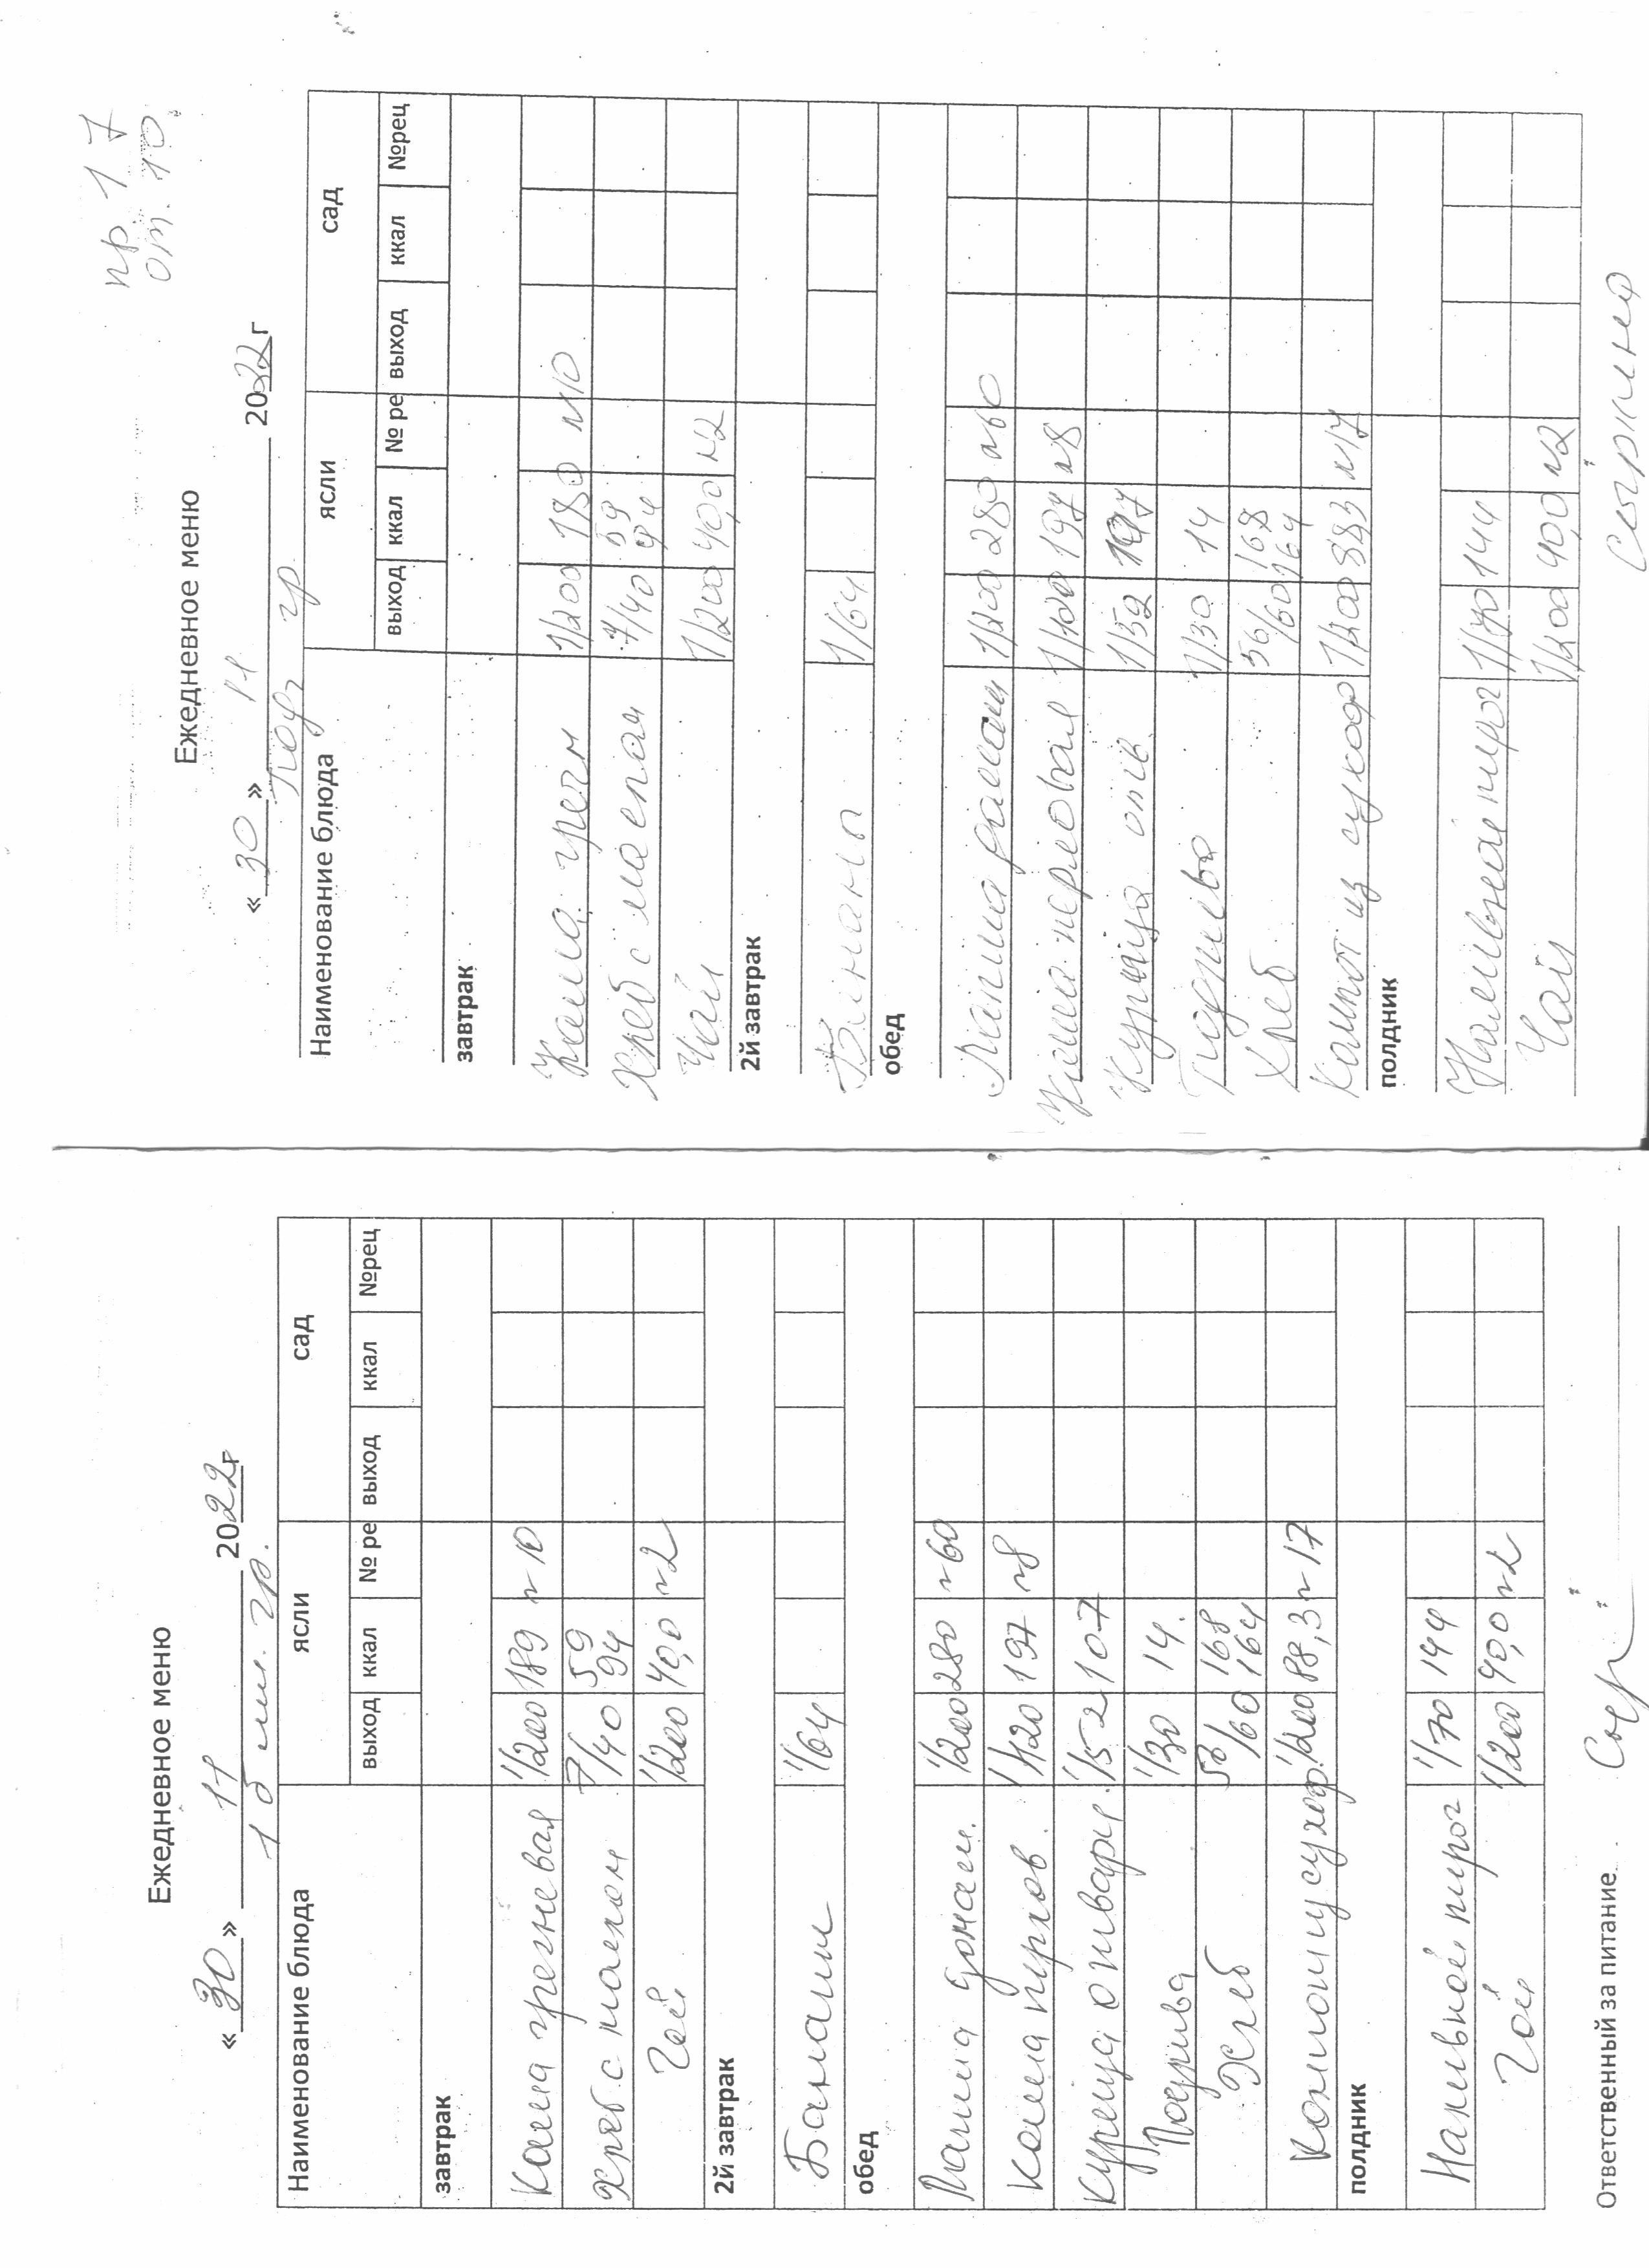 Ежедневное меню
« 30 » 11 2022г
1 б мл. гр.
Наименование блюда ясли сад
выход ккал № ре выход ккал №рец
завтрак
Каша гречневая 1/200 189 № 10
Хлеб с маслом 7/40 59 94
Чай 1/200 40,0 №2
2й завтрак
Бананы 1/64
обед
Лапша домаш. 1/200 280 №60
Каша перлов. 1/120 197 №8
Курица отварн. 1/52 107
Подлива 1/30 14.
Хлеб 50/60 168 164
Компот из сухоф. 1/200 88,3 №17
полдник
Наливной пирог 1/70 144
Чай 1/200 40,0 №2
Ответственный за питание
пр. 17
от. 10.
Ежедневное меню
« 30 » 11 2022г
гр
Наименование блюда ясли сад
выход ккал № ре выход ккал №рец
завтрак
Каша гречн 1/200 189 №10
Хлеб с маслом 7/40 59 94
Чай 1/200 40,0 №2
2й завтрак
Бананы 1/64
обед
Лапша домаш 1/200 280 №60
Каша перловая 197 №8
Курица отв. 1/52
Подлива 1/30 14
Хлеб 50/60 168 164
Компот из сухоф 1/200 883 №17
полдник
Наливной пирог 1/70 144
Чай 1/200 40,0 №2